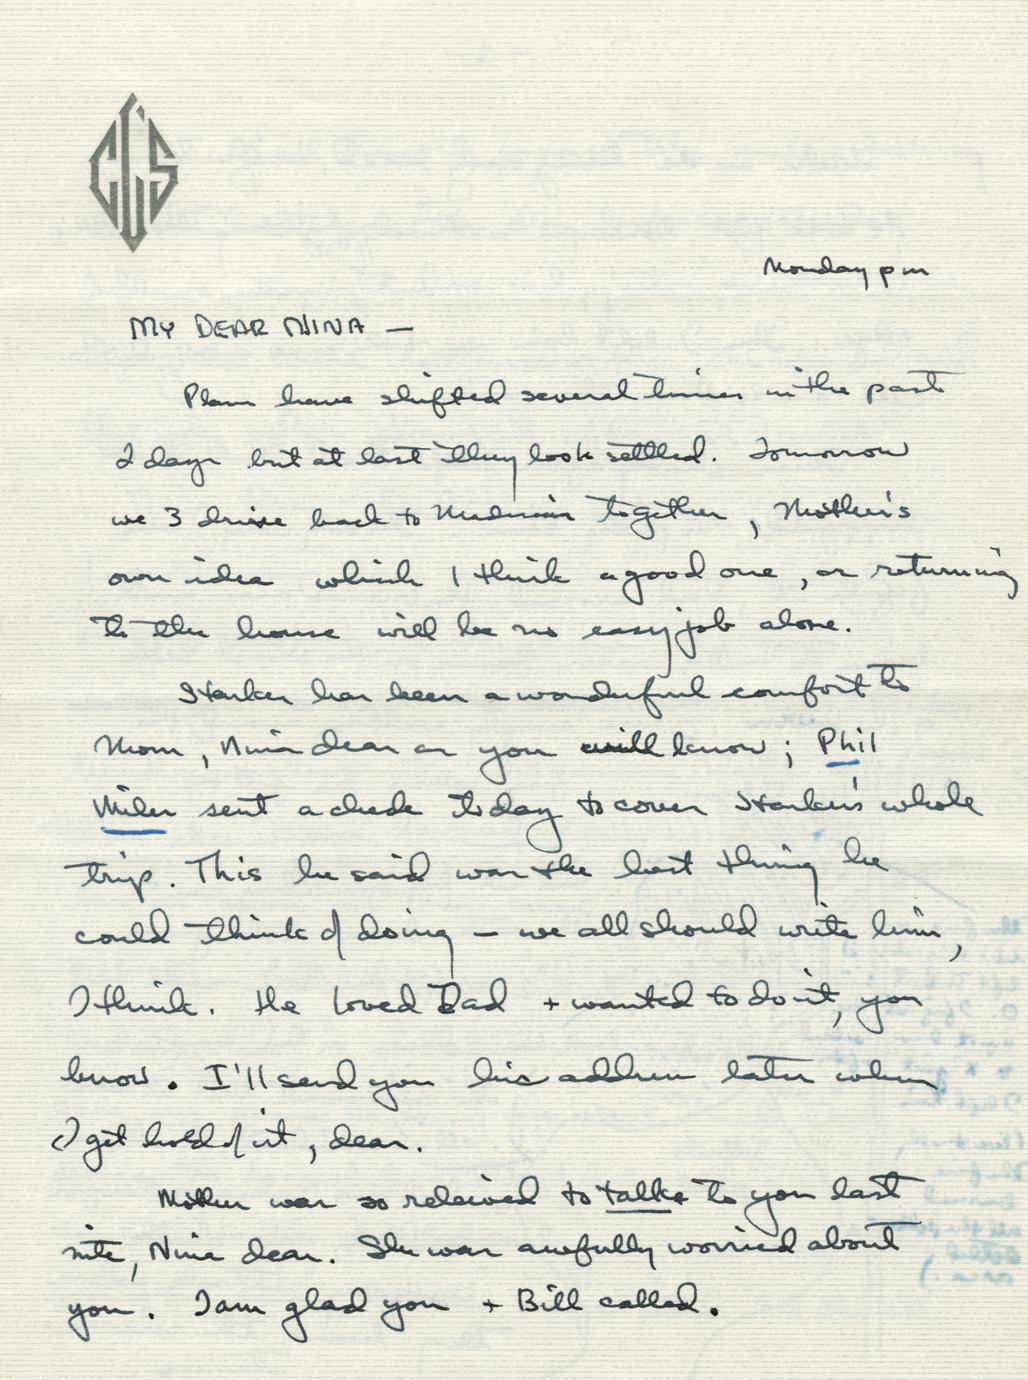 CLS
Monday pm
MY DEAR NINA —
Plans have shifted several times in the past
2 days but at last they look settled. Tomorrow
we 3 drive back to Madison together, Mother's
own idea which I think a good one, as returning
to the house will be no easy job alone.
Harker has been a wonderful comfort to
Mom, Nina dear as you will know; Phil
Miler sent a check today to cover Harker's whole
trip. This he said was the best thing he
could think of doing — we all should write him,
I think. He loved Dad + wanted to do it, you
know. I'll send you his address later when
I get hold of it, dear.
Mother was so releived to talk to you last
nite, Nina dear. She was awefully worried about
you. I am glad you + Bill called.